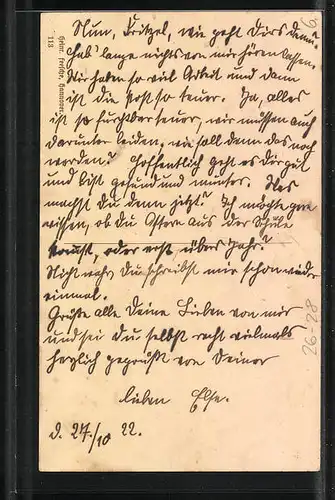 Nun, Fritzel, wie geht Dirs denn?
Hab' lange nichts von mir hören lassen.
Wir haben so viel Arbeit und dann
ist die Post so teuer. Ja, alles
ist so furchtbar teuer, wir müssen auch
darunter leiden, wie soll denn das noch
werden? Hoffentlich geht es Dir gut
und bist gesund und munter. Was
machst Du denn jetzt? Ich möchte gern
wissen, ob Du Ostern aus der Schule
kommst, oder erst übers Jahr?
Nicht wahr, Du schreibst mir schon wieder
einmal.
Grüße alle Deine Lieben von mir
und sei Du selbst recht vielmals
herzlich gegrüßt von Deiner
lieben Else.
d. 27./10 22.
Heinr. Fesche, Hannover.
113
26-28